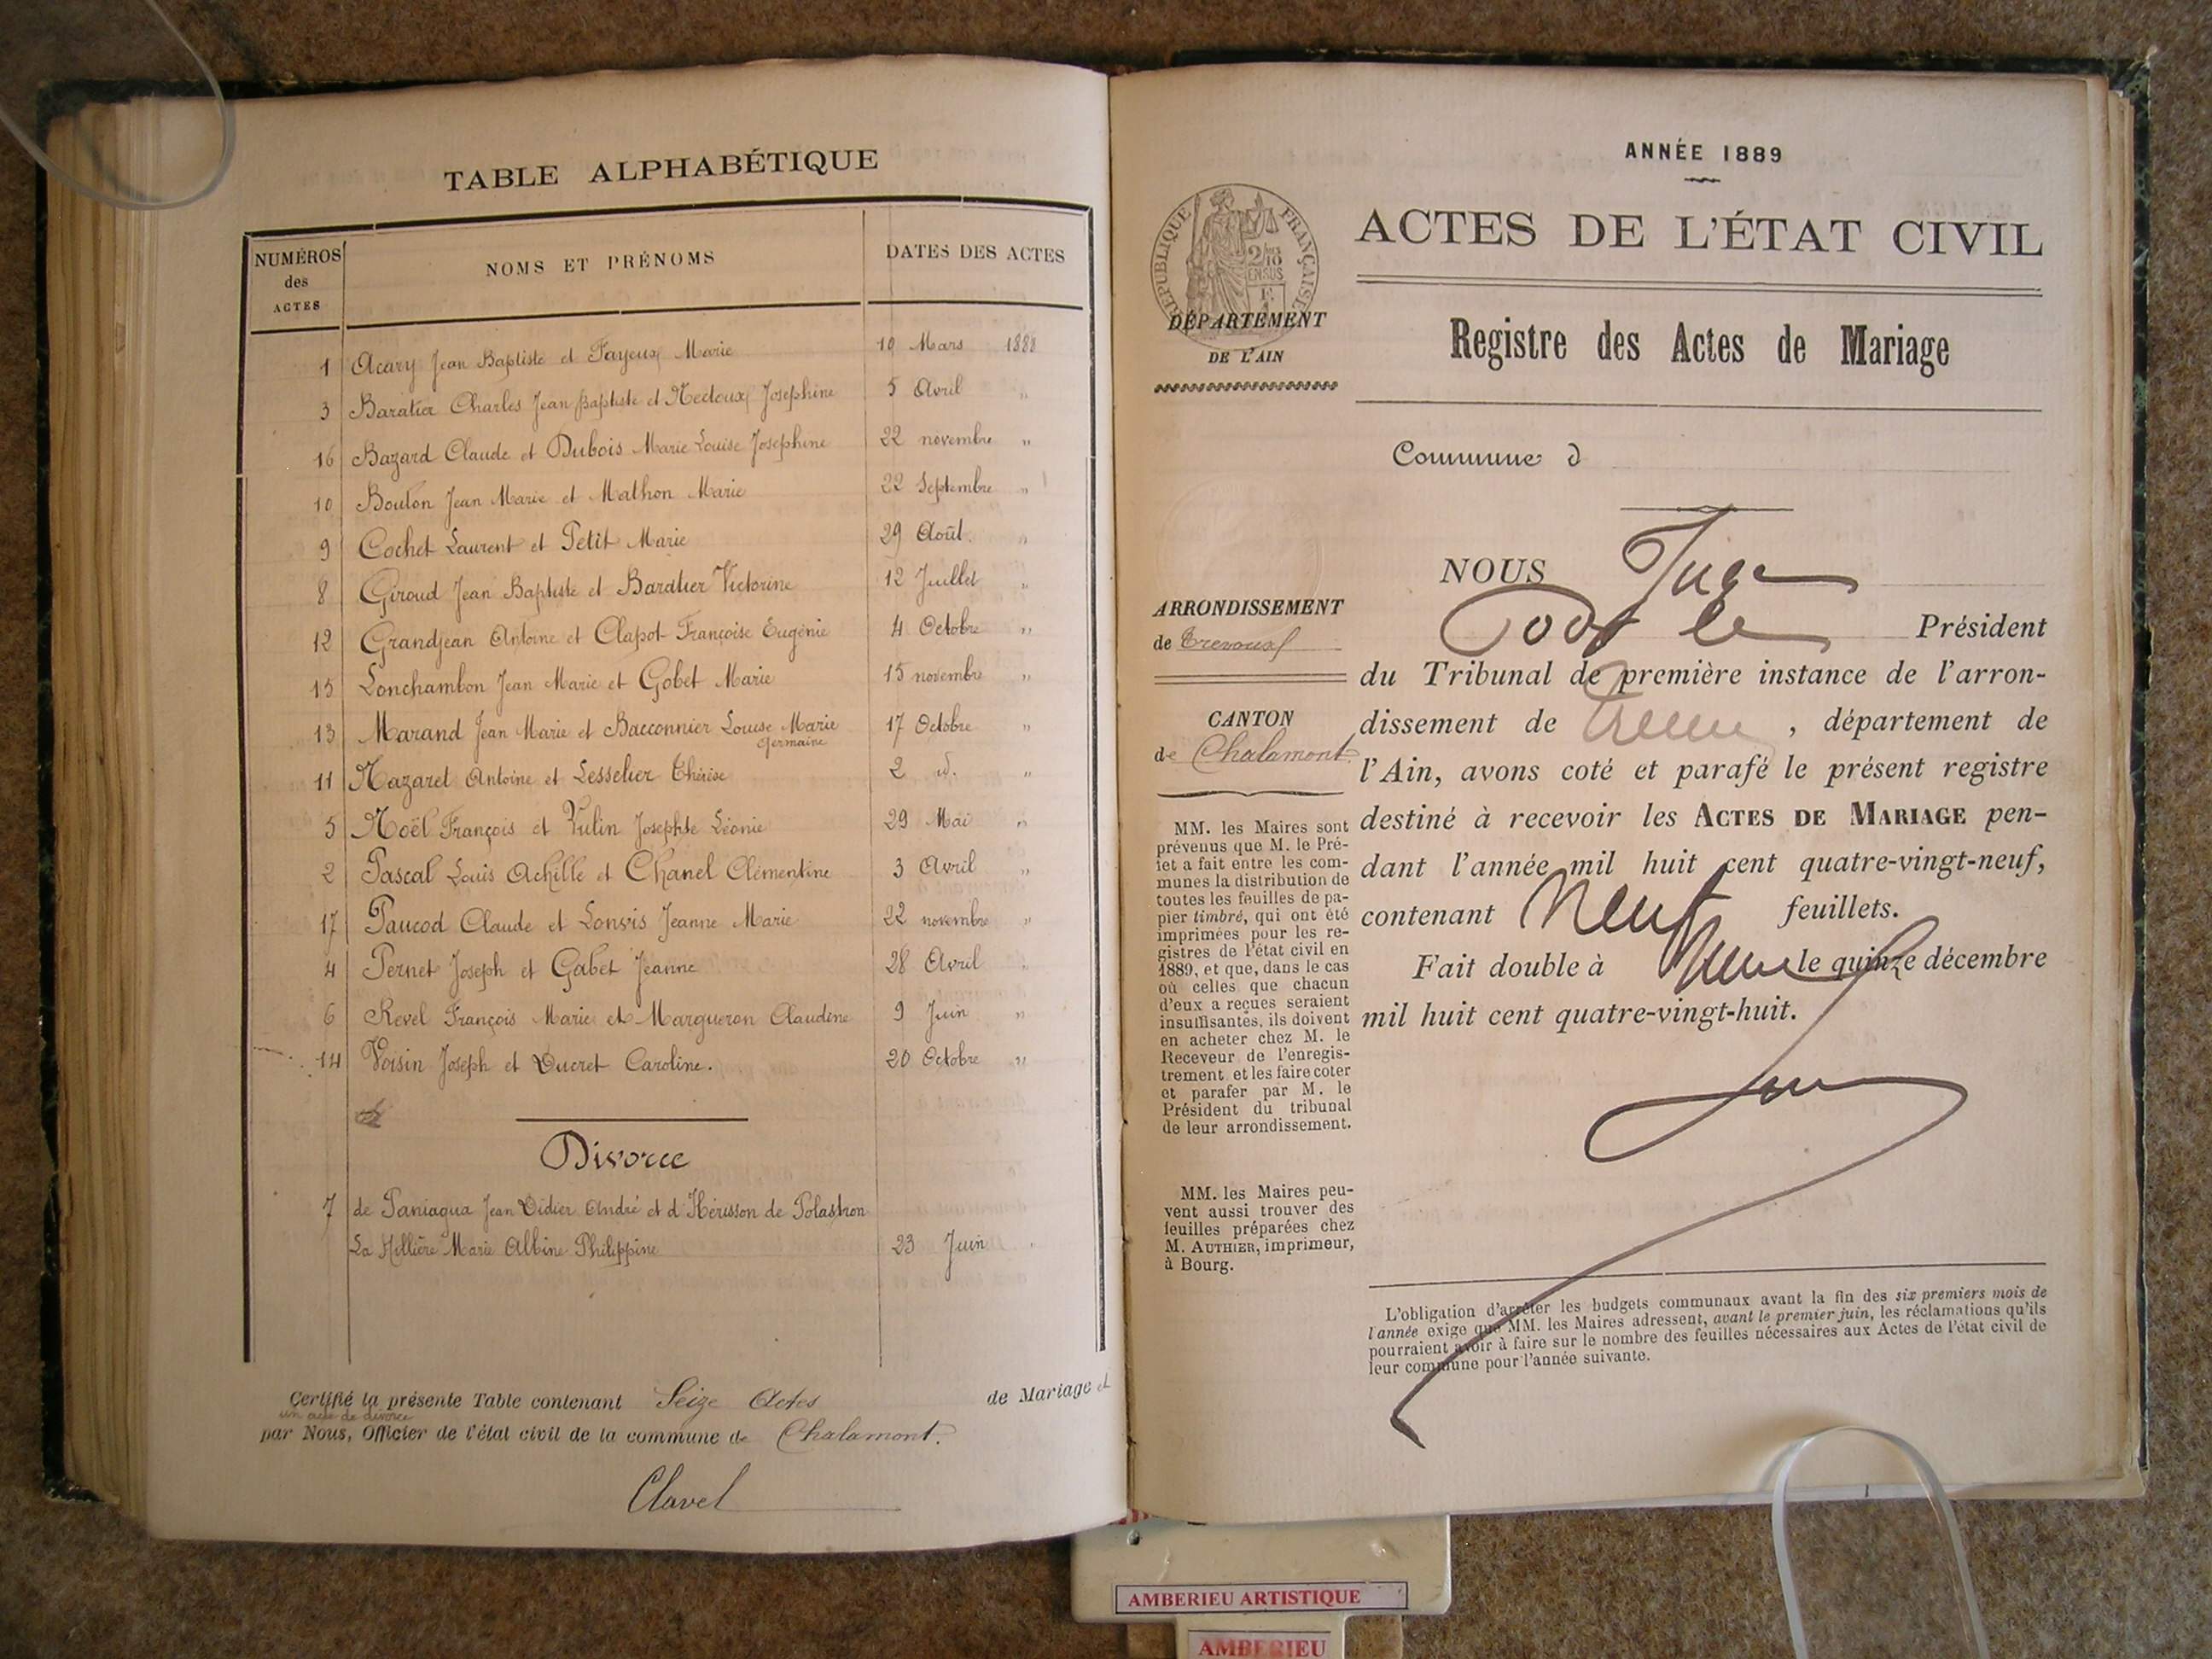 TABLE ALPHABÉTIQUE
NUMÉROS des ACTES NOMS ET PRÉNOMS DATES DES ACTES
1 Acary Jean Baptiste et Fayeux Marie 10 Mars 1888
3 Baratier Charles Jean Baptiste et Nectoux Josephine 5 Avril "
16 Bazard Claude et Dubois Marie Louise Josephine 22 novembre "
10 Bouton Jean Marie et Mathon Marie 22 Septembre "
9 Cochet Laurent et Petit Marie 29 Août. "
8 Giroud Jean Baptiste et Baratier Victorine 12 Juillet "
12 Grandjean Antoine et Clapot Françoise Eugénie 4 Octobre "
15 Lonchambon Jean Marie et Gobet Marie 15 novembre "
13 Marand Jean Marie et Bacconnier Louise Marie 17 Octobre "
Germaine
11 Nazaret Antoine et Lesselier Thérèse 2 id. "
5 Noël François et Vulin Josephte Léonie 29 Mai "
2 Pascal Louis Achille et Chanel Clémentine 3 Avril "
17 Paucod Claude et Jeanne Marie 22 novembre "
4 Pernet Joseph et Gabet Jeanne 28 Avril "
6 Revel François Marie et Margueron Claudine 9 Juin "
14 Voisin Joseph et Ducret Caroline. 20 Octobre "
Divorce
7 de Paniagua Jean Didier André et d'Hérisson de Polastron
La Hillière Marie Albine Philippine 23 Juin "
Certifié la présente Table contenant Seize Actes de Mariage et
un acte de divorce
par Nous, Officier de l'état civil de la commune de Chalamont.
Clavel
ANNÉE 1889
RÉPUBLIQUE FRANÇAISE
2/10 EN SUS
ACTES DE L'ÉTAT CIVIL
DÉPARTEMENT
DE L'AIN
Registre des Actes de Mariage
Commune d
ARRONDISSEMENT
de Trevoux
CANTON
de Chalamont
MM. les Maires sont
prévenus que M. le Pré-
fet a fait entre les com-
munes la distribution de
toutes les feuilles de pa-
pier timbré, qui ont été
imprimées pour les re-
gistres de l'état civil en
1889, et que, dans le cas
où celles que chacun
d'eux a reçues seraient
insuffisantes, ils doivent
en acheter chez M. le
Receveur de l'enregis-
trement et les faire coter
et parafer par M. le
Président du tribunal
de leur arrondissement.
MM. les Maires peu-
vent aussi trouver des
feuilles préparées chez
M. AUTHIER, imprimeur,
à Bourg.
NOUS Juge
pour le Président
du Tribunal de première instance de l'arron-
dissement de , département de
l'Ain, avons coté et parafé le présent registre
destiné à recevoir les ACTES DE MARIAGE pen-
dant l'année mil huit cent quatre-vingt-neuf,
contenant Neuf feuillets.
Fait double à le quinze décembre
mil huit cent quatre-vingt-huit.
L'obligation d'arrêter les budgets communaux avant la fin des six premiers mois de
l'année exige que MM. les Maires adressent, avant le premier juin, les réclamations qu'ils
pourraient avoir à faire sur le nombre des feuilles nécessaires aux Actes de l'état civil de
leur commune pour l'année suivante.
AMBERIEU ARTISTIQUE
AMBERIEU